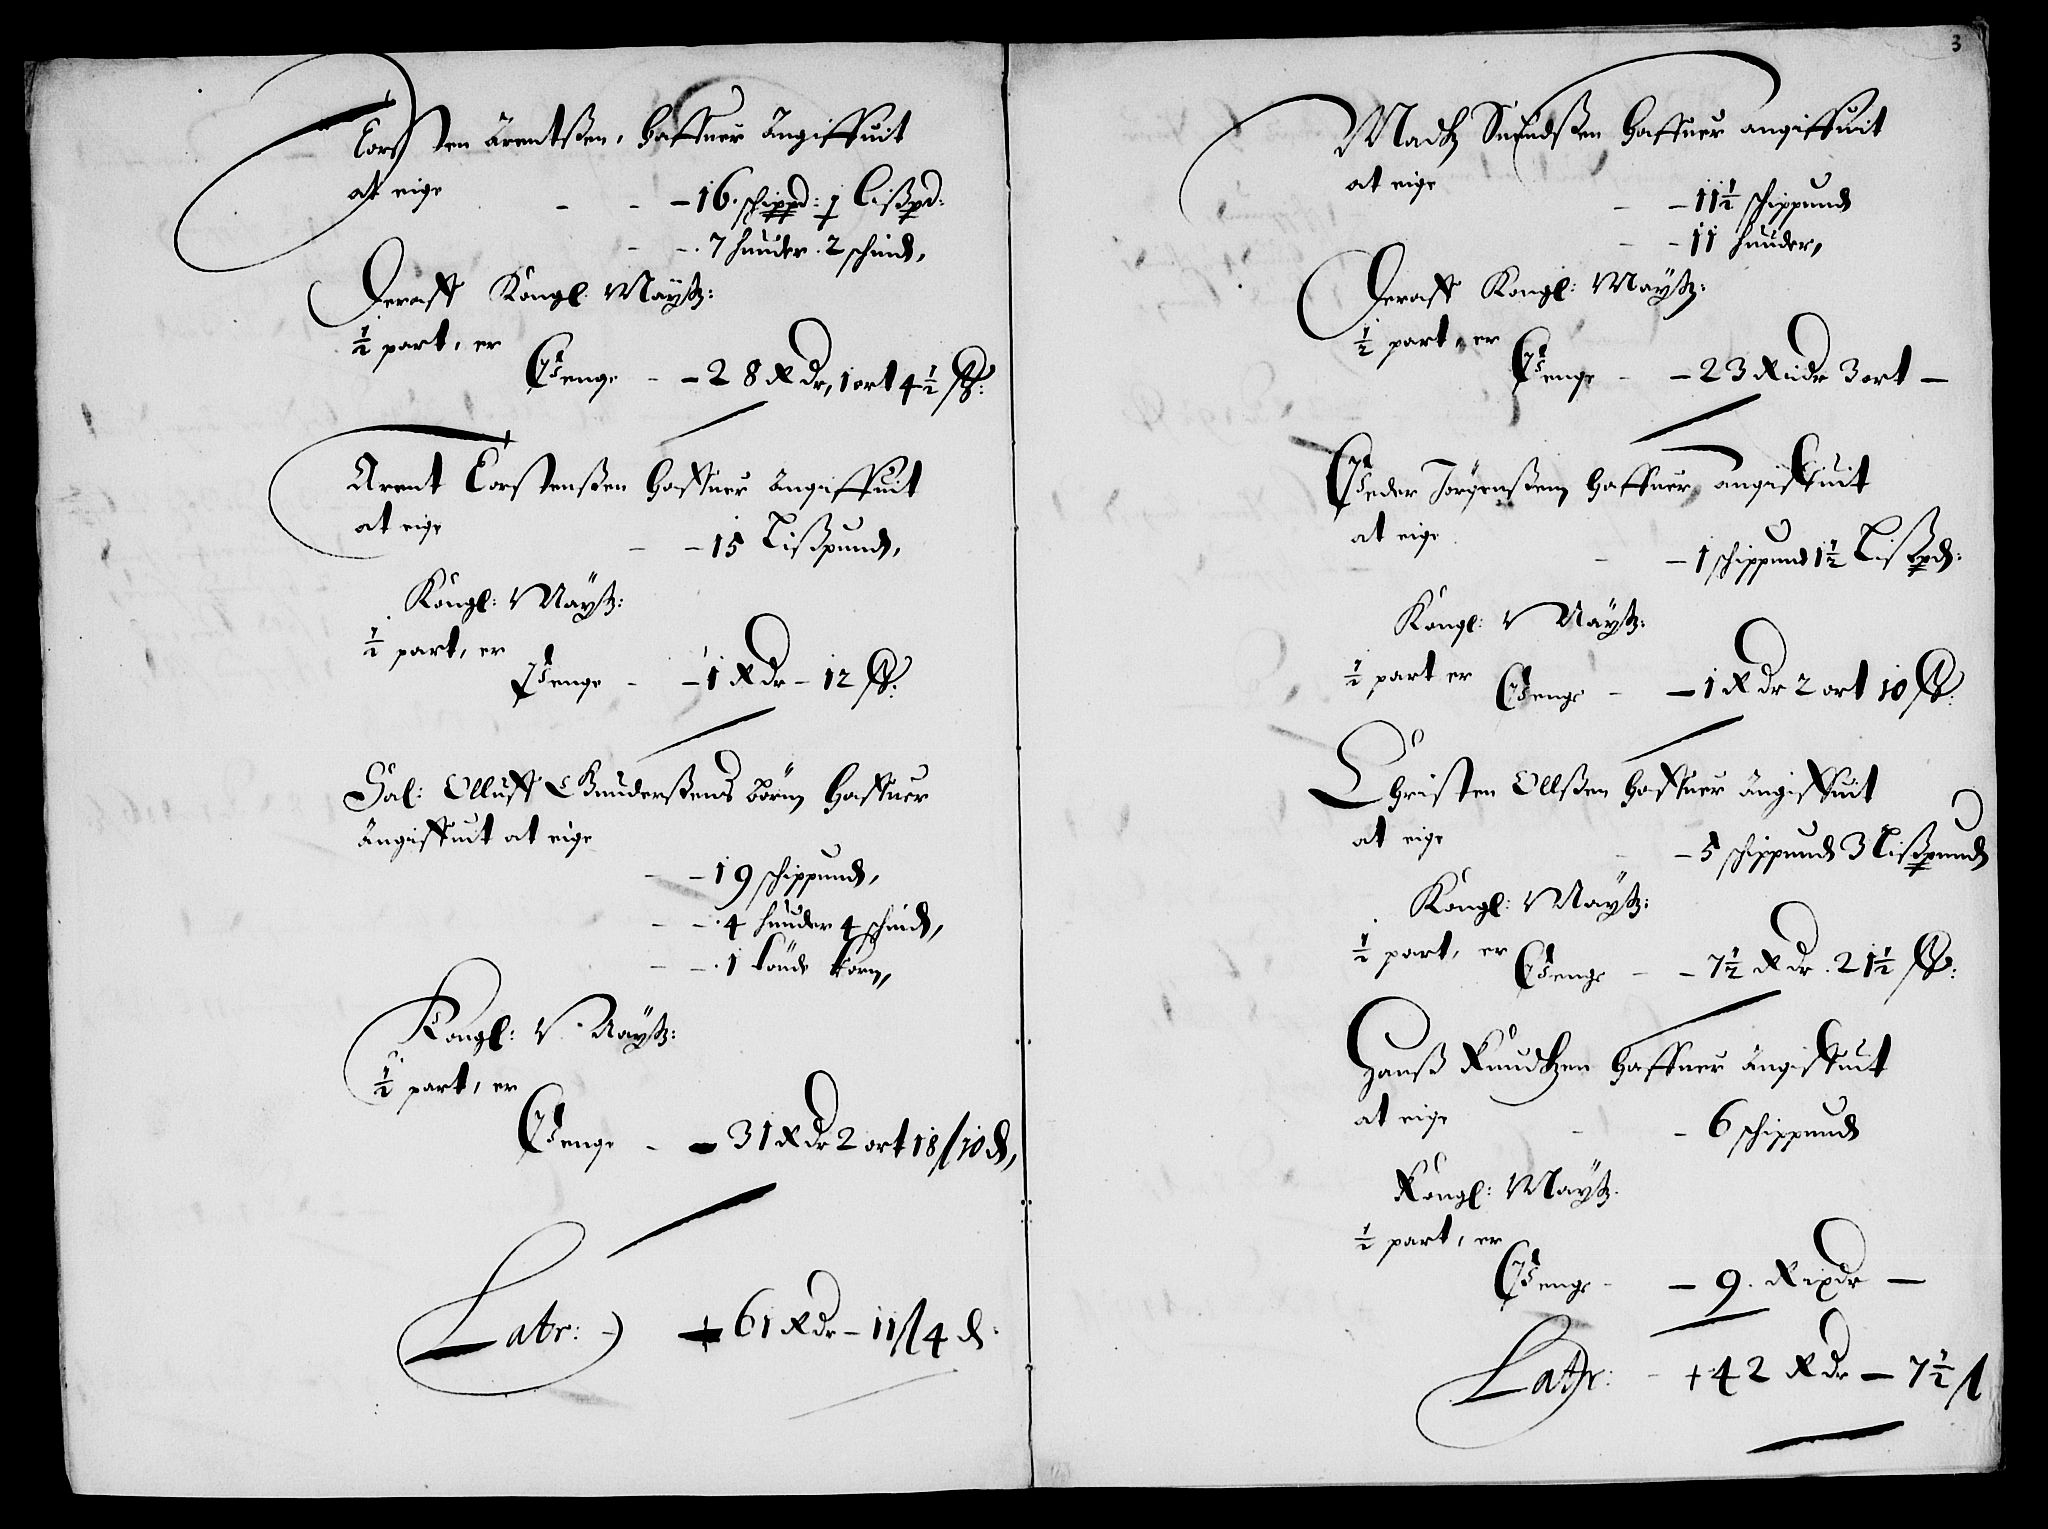 Torsten Arentßen, haffuer Angiffuit
at eige - - - 16. schippd: 1 Lißpd:
- - . 7 huuder . 2 schind,
Deraff Kongl: Maÿtz:
1/2 part, er
Penge - - 28 Rdr, 1 ort 4 1/2 ß:
Arent Torstenßen haffuer Angiffuit
at eige
- - 15 Lißpund,
Kongl: Maÿtz:
1/2 part, er
Penge - - 1 Rdr - 12 ß:
Sal: Olluff Gunderßens börn haffuer
Angiffuit at eige
- - 19 schippund,
- - . 4 huuder 4 schind,
- - . 1 tönde korn,
Kongl: Maÿtz:
1/2 part, er
Penge - - 31 Rdr 2 ort 18 ß 10 d,
Latr: - 61 Rdr - 11 ß 4 d:
3
Madtz Suendßen haffuer angiffuit
at eige
- - 11 1/2 schippund
- - 11 huuder,
Deraff Kongl: Maÿtz:
1/2 part, er
Penge - - 23 Rixdr 3 ort -
Peder Jörgenßen haffuer angiffuit
at eige
- - 1 schippund 1 1/2 Lißpd:
Kongl: Maÿtz:
1/2 part er
Penge - - 1 Rdr 2 ort 10 ß:
Christen Ollßen haffuer Angiffuit
at eige
- - 5 schippund 3 Lißpund
Kongl: Maÿtz:
1/2 part, er
Penge - - 7 1/2 Rdr . 21 1/2 ß:
Hanß Knudtzen haffuer Angiffuit
at eige
- - 6 schippund
Kongl: Maÿtz.
1/2 part, er
Penge - - 9. Rixdr -
Latr: - + 42 Rdr - 7 1/2 ß